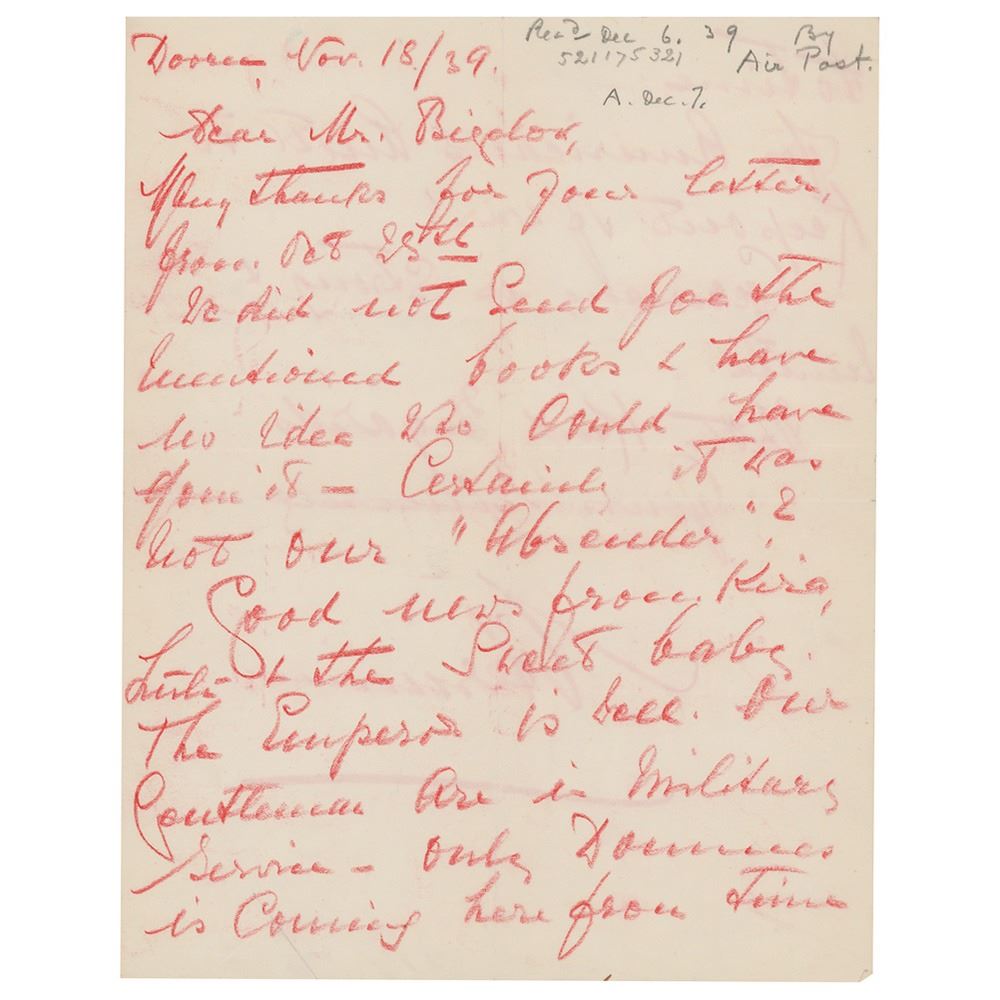 Rec'd Dec 6. 39 By
521175321 Air Post.
A. Dec. 7.
Doorn, Nov. 18/39.
Dear Mr. Bigelow,
Many thanks for your letter,
from Oct 23th
We did not send for the
mentioned books & have
no idea who could have
it – Certainly it was
not our "Absender".
Good news from Kira,
Lulu & the sweet baby.
The Emperor is well. Our
Gentleman are in Military
Service – only Dommes
is coming here from time